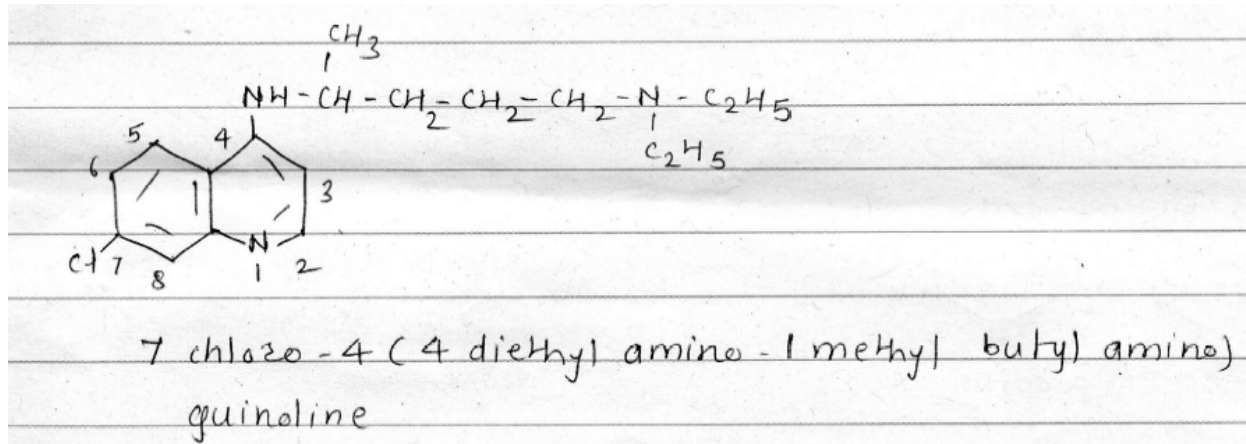 CH3
NH-CH-CH2-CH2-CH2-N-C2H5
C2H5
5 4
6
3
Cl 7
8
N
1 2
7 chloro-4 (4 diethyl amino-1 methyl butyl amino)
quinoline